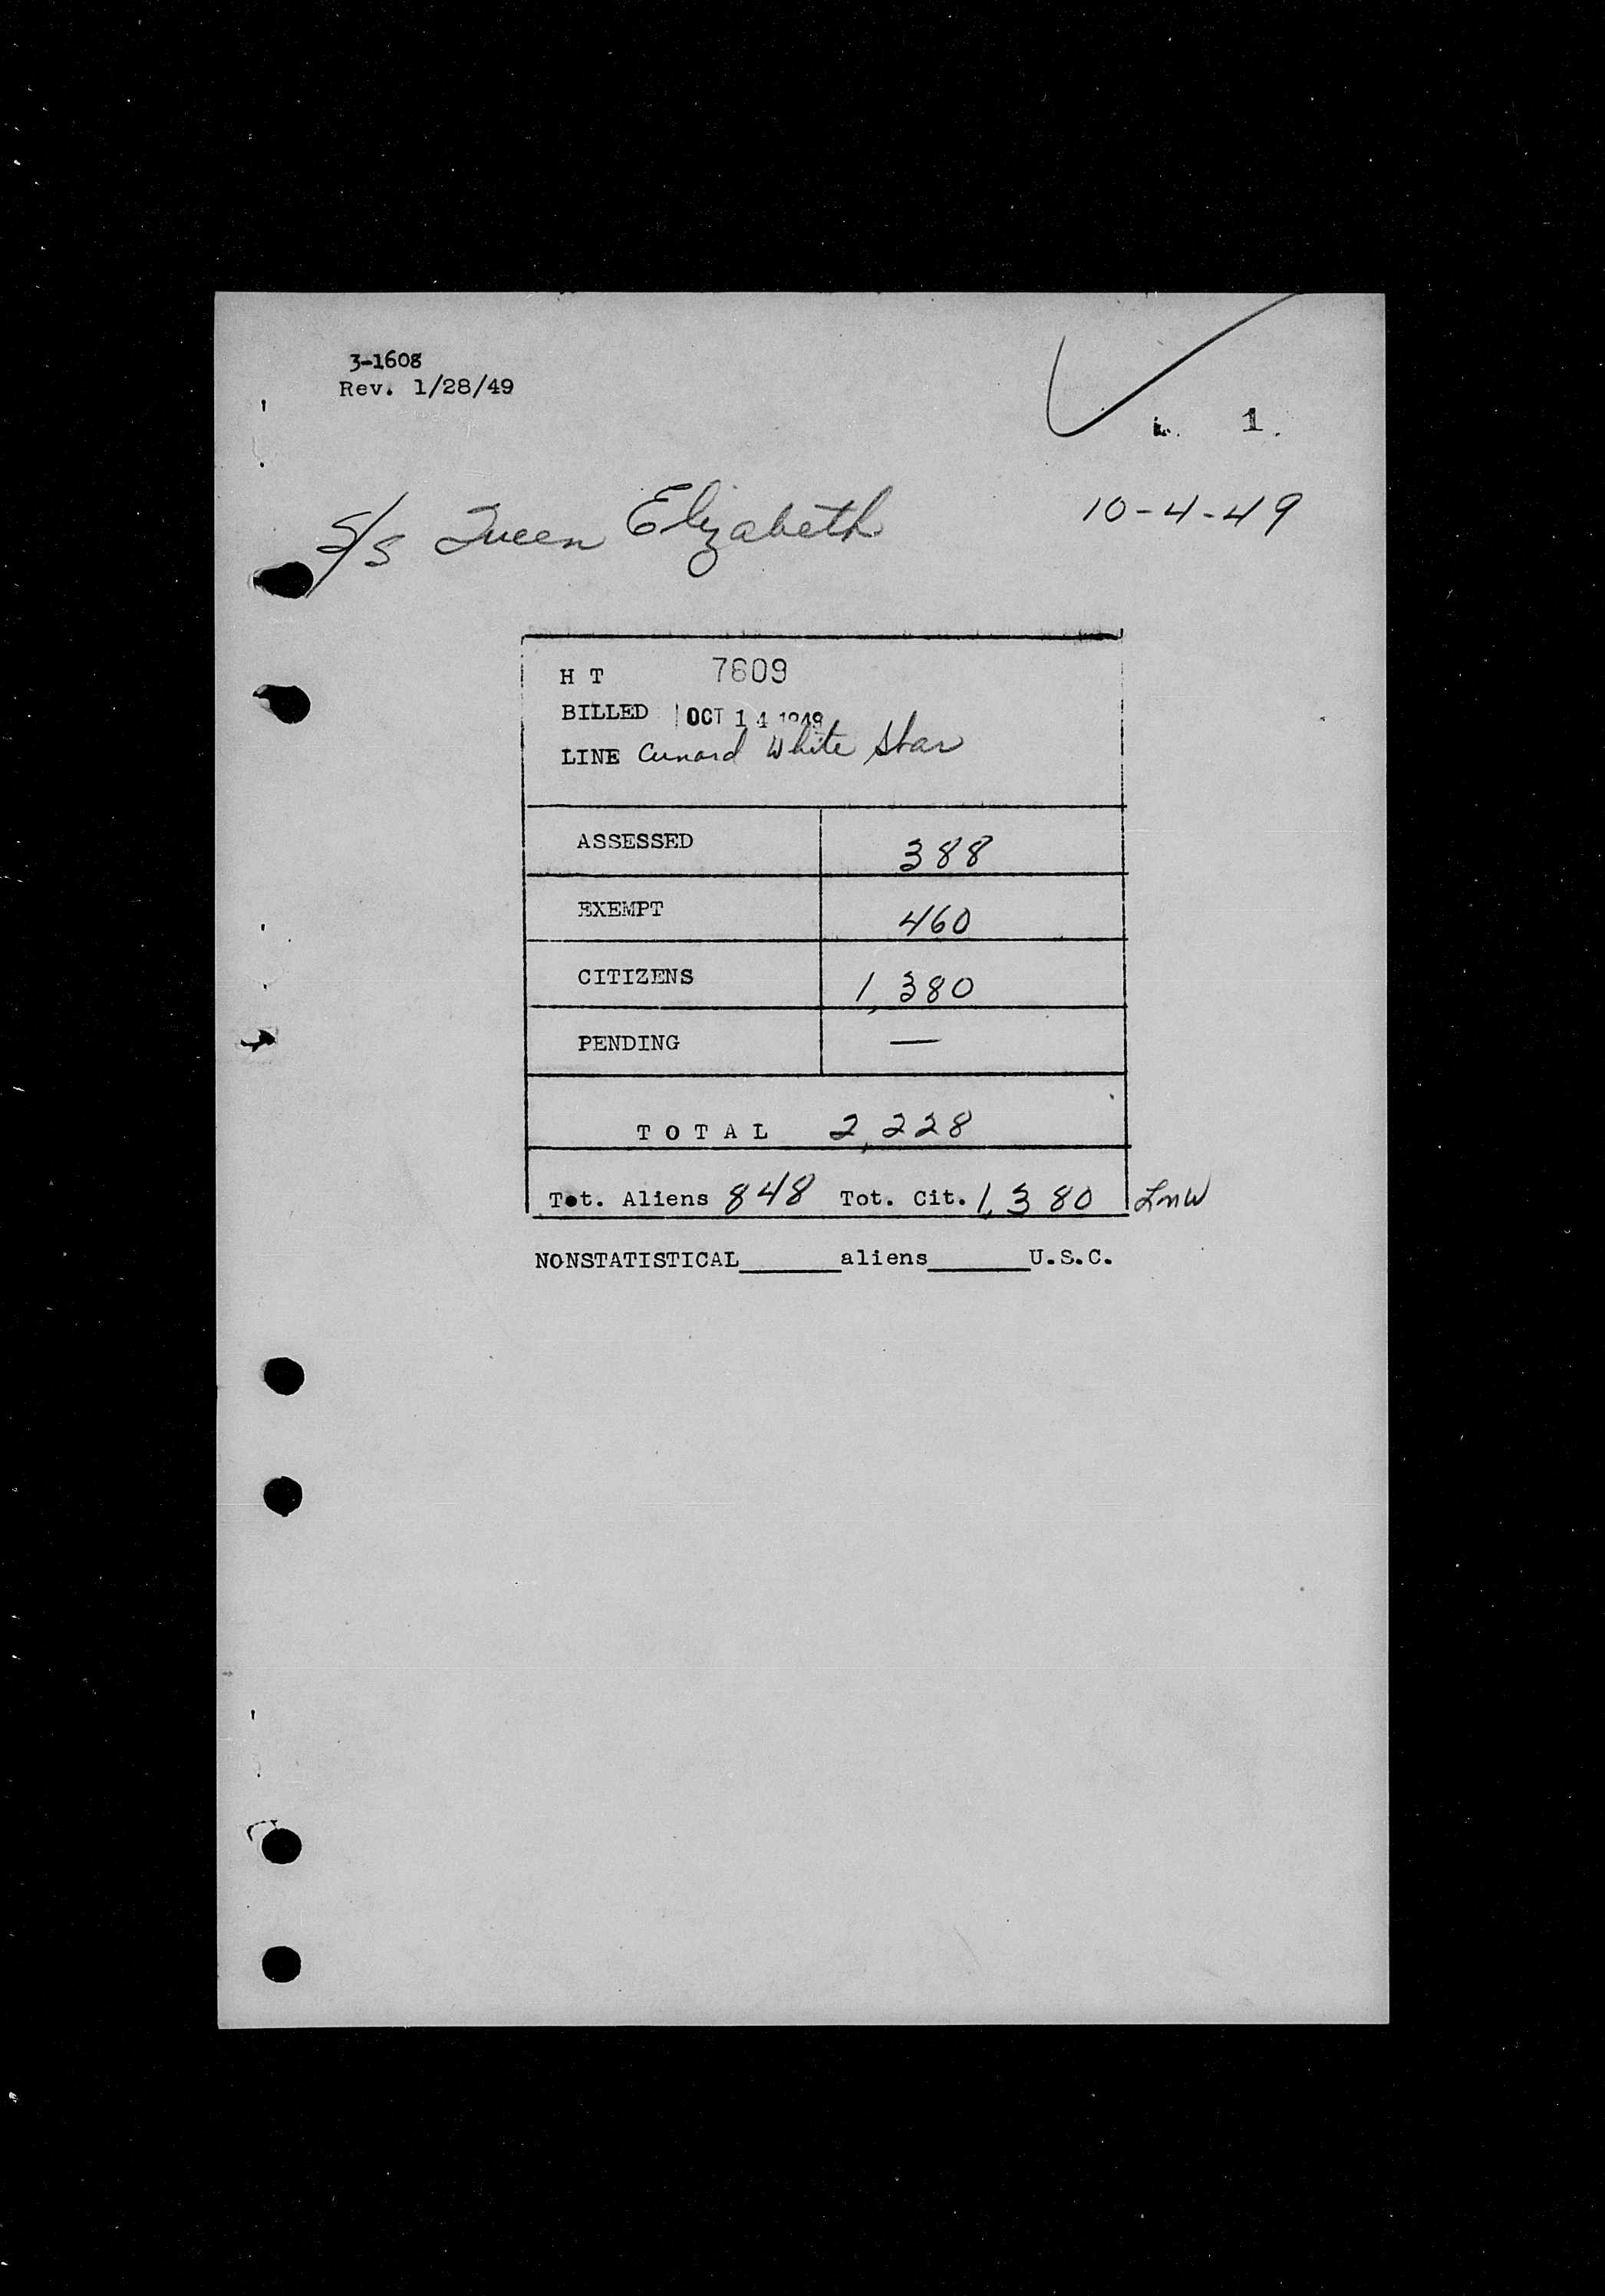 3-1608
Rev. 1/28/49
1.
S/s Queen Elizabeth 10-4-49
H T 7609
BILLED OCT 14 1949
LINE Cunard White Star
ASSESSED 388
EXEMPT 460
CITIZENS 1,380
PENDING —
T O T A L 2,228
Tot. Aliens 848 Tot. Cit. 1,380 LMW
NONSTATISTICAL______aliens______U.S.C.